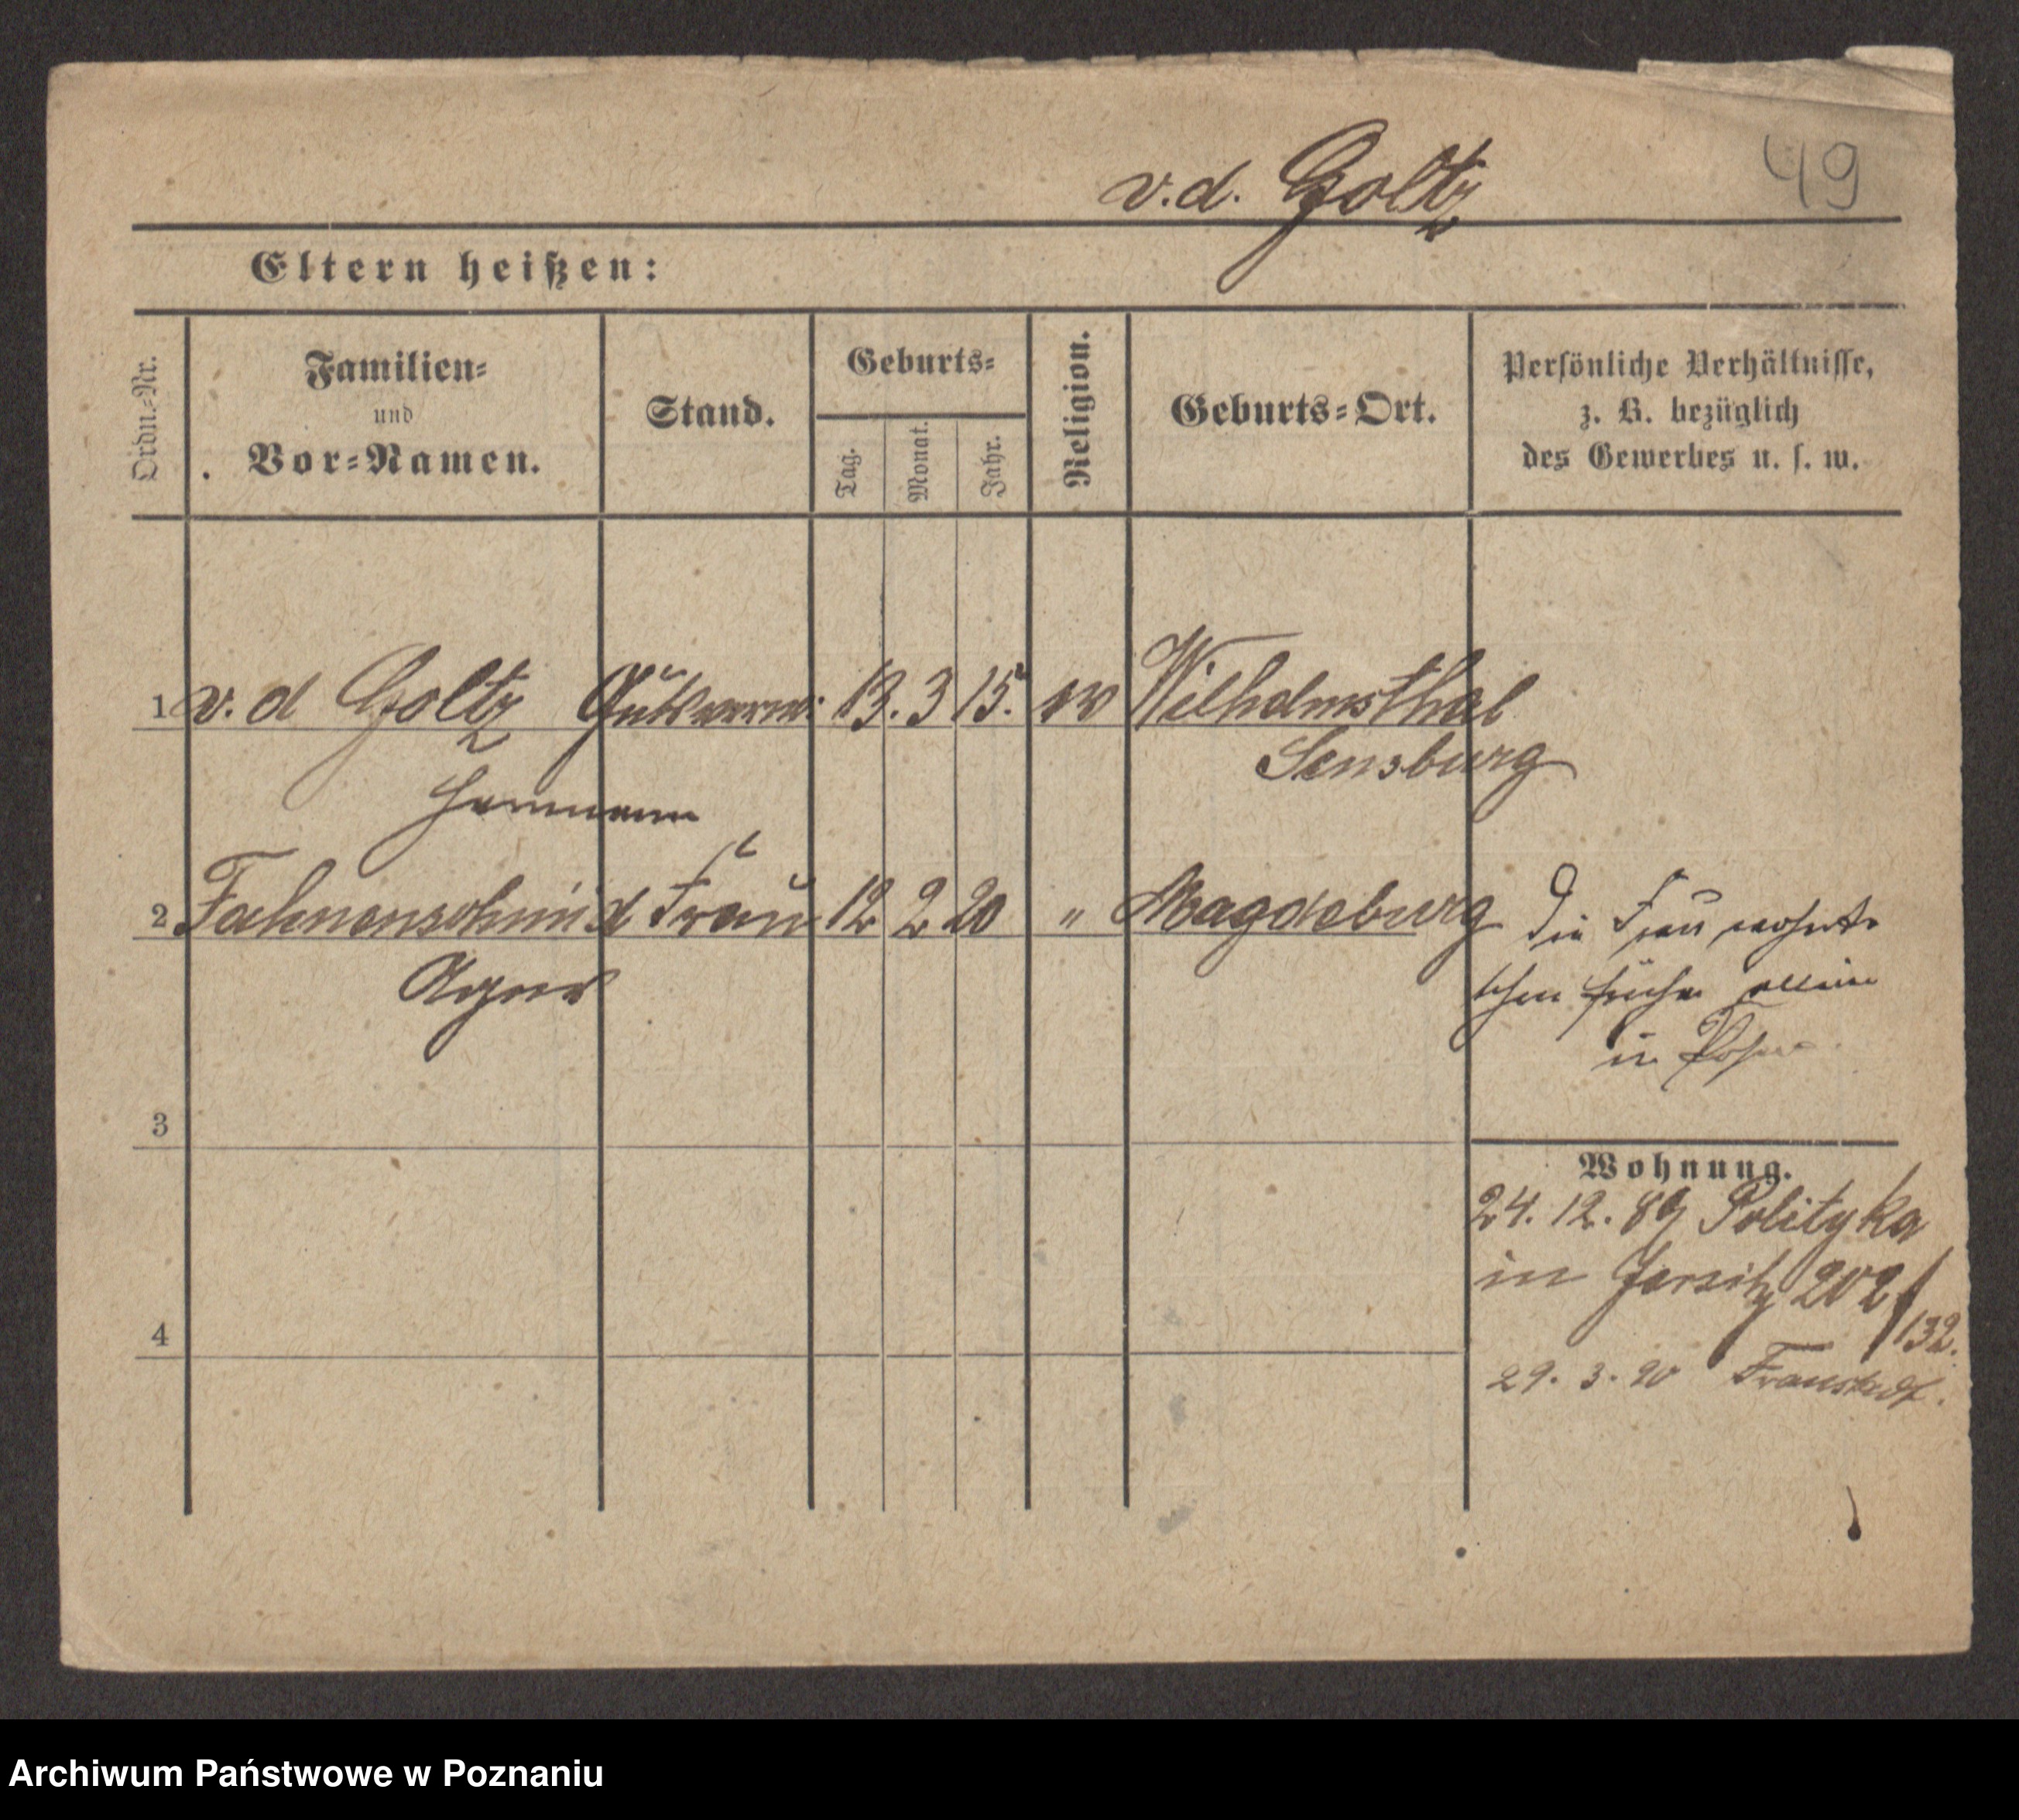 v. d. Goltz 49
Eltern heißen:
Ordn.-Nr.
Familien-
und
Vor-Namen.
Stand.
Geburts-
Tag.
Monat.
Jahr.
Religion.
Geburts-Ort.
Persönliche Verhältnisse,
z. B. bezüglich
des Gewerbes u. s. w.
1 v. d Goltz 13. 3 15. ev Wilhelmsthal
Sensburg
Hermann
2 Fahnenschmid Frau 12 2 20 " Magdeburg
Agnes
Die Frau wohnte
schon früher allein
in Posen.
3
Wohnung.
24. 12. 89 Polityka
in Jersitz 202/132.
4
29. 3. 90 Fraustadt.
Archiwum Państwowe w Poznaniu